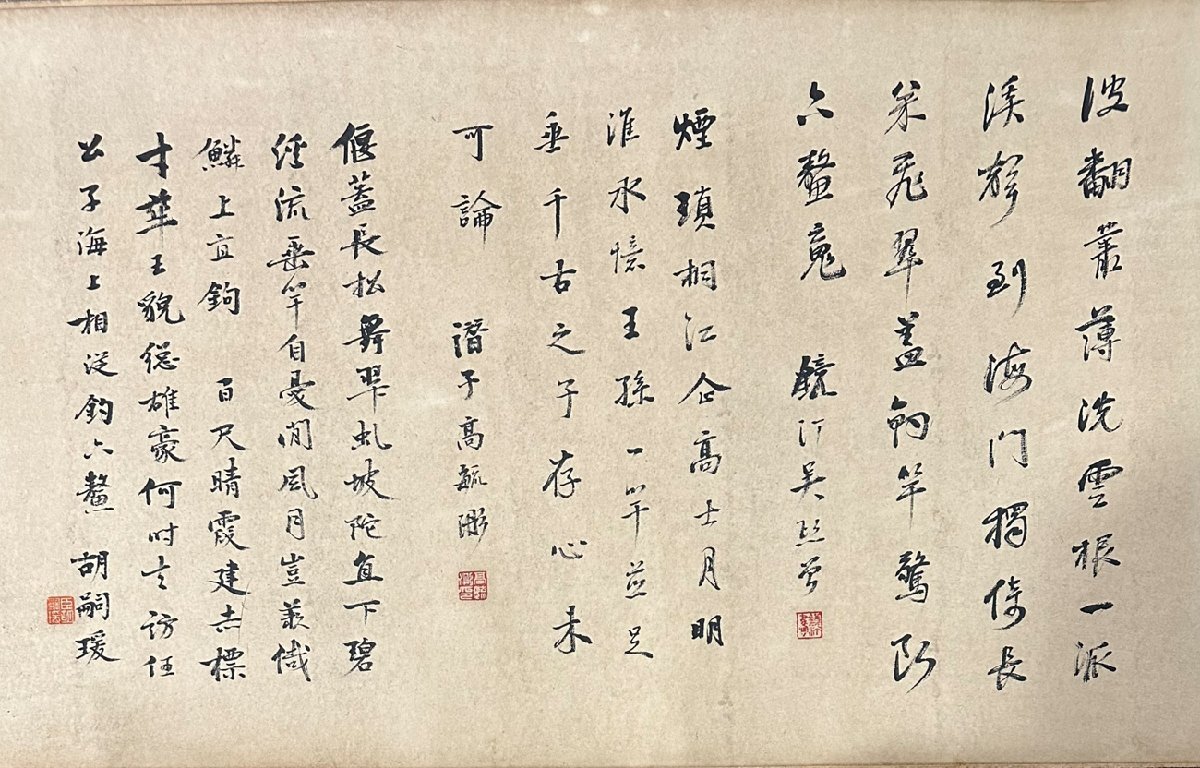 波翻叢薄洗雲根一派
溪聲到海門獨倚長
松飛翠蓋釣竿驚斷
六鼇魂 鏡汀吳熙曾
煙瑣桐江企高士月明
淮水憶王孫一竿並足
垂千古之子存心未
可論 潛子高毓浵
偃蓋長松舞翠虬坡陀直下碧
徑流垂竿自憂閒風月豈羨
鱗上直鉤 百尺晴霞建赤標
才華玉貌總雄豪何時去訪任
公子海上相從釣六鼇 胡嗣瑗